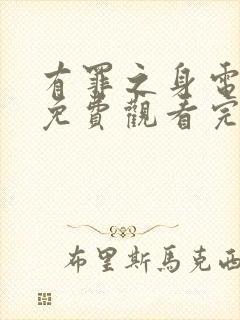 有罪之身電
免費觀看完
布里斯馬克西